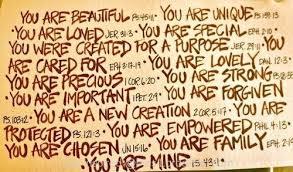 YOU ARE BEAUTIFUL PS.45:11 · YOU ARE UNIQUE PS.139:13
· YOU ARE LOVED JER. 31:3 · YOU ARE SPECIAL EPH. 2:10 ·
YOU WERE CREATED FOR A PURPOSE JER. 29:11 YOU
ARE CARED FOR EPH. 3:17-19 · YOU ARE LOVELY DAN. 12:3 ·
YOU ARE PRECIOUS 1 COR. 6:20 · YOU ARE STRONG
YOU ARE IMPORTANT 1 PET. 2:9 · YOU ARE FORGIVEN
PS. 103:12 · YOU ARE A NEW CREATION 2 COR. 5:17 · YOU ARE
PROTECTED PS. 121:3 · YOU ARE EMPOWERED PHIL. 4:13 ·
YOU ARE CHOSEN JN 15:16 · YOU ARE FAMILY EPH. 2:19
YOU ARE MINE IS. 43:1 ·